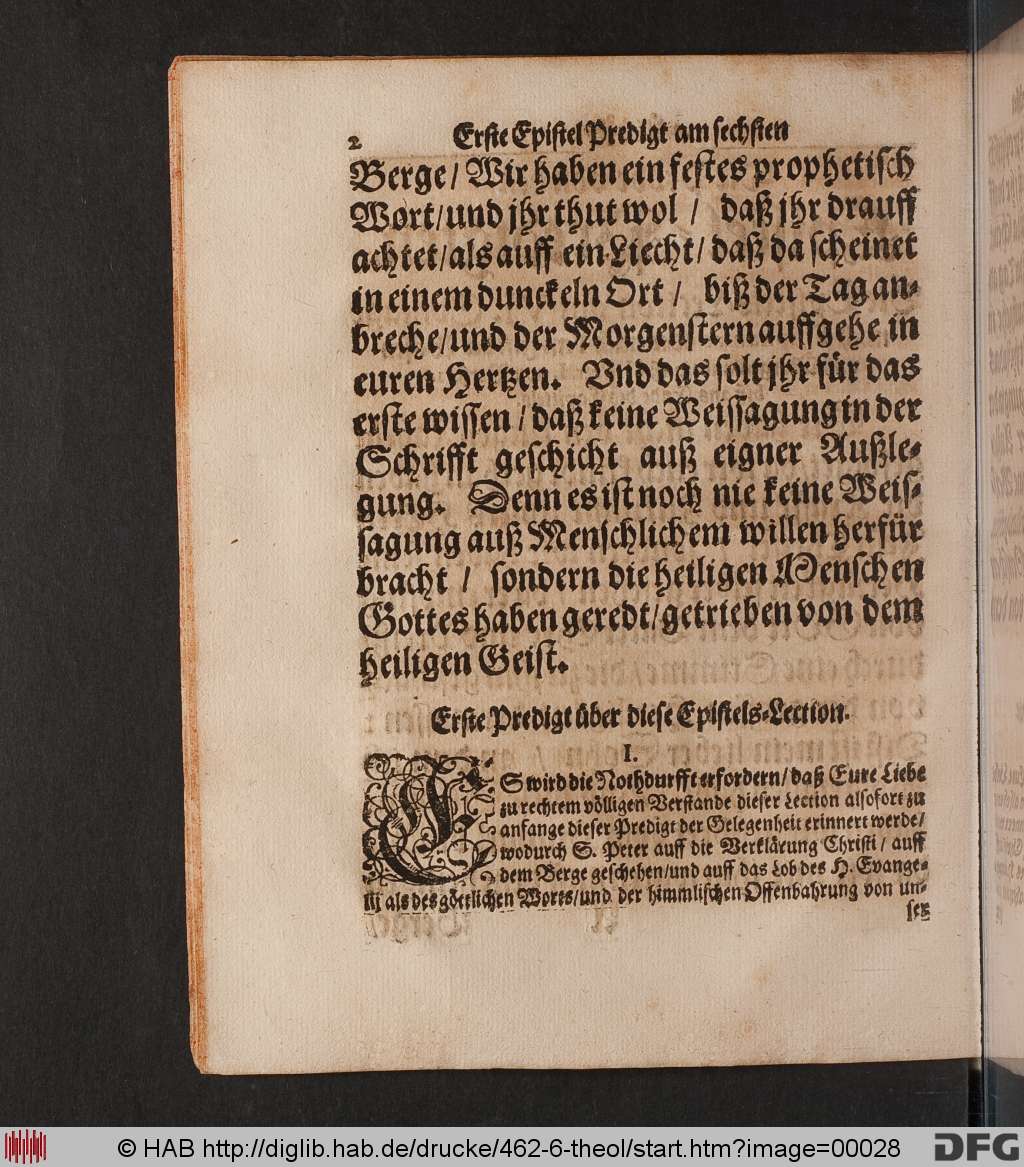 2 Erste Epistel Predigt am sechsten
Berge / Wir haben ein festes prophetisch
Wort/und jhr thut wol / daß jhr drauff
achtet/als auff ein Liecht/ daß da scheinet
in einem dunckeln Ort / biß der Tag an-
breche/und der Morgenstern auffgehe in
euren Hertzen. Vnd das solt jhr für das
erste wissen / daß keine Weissagung in der
Schrifft geschicht auß eigner Außle-
gung. Denn es ist noch nie keine Weis-
sagung auß Menschlichem willen herfür
bracht / sondern die heiligen Menschen
Gottes haben geredt/getrieben von dem
heiligen Geist.
Erste Predigt über diese Epistels-Lection.
I.
ES wird die Nothdurfft erfordern/ daß Eure Liebe
zu rechtem völligen Verstande dieser Lection alsofort zu
anfange dieser Predigt der Gelegenheit erinnert werde/
wodurch S. Peter auff die Verklärung Christi / auff
dem Berge geschehen/und auff das Lob des H. Evange-
lii als des göttlichen Worts/und der himmlischen Offenbahrung von un-
ser
© HAB http://diglib.hab.de/drucke/462-6-theol/start.htm?image=00028
DFG